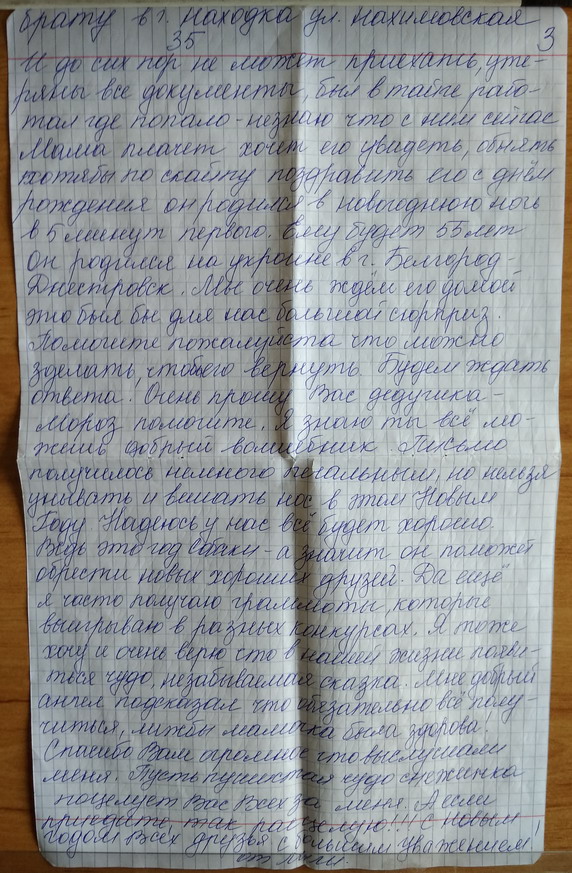 брату в г. Находка ул. Нахимовская
35
3
И до сих пор не может приехать, уте-
ряны все документы, был в тайге рабо-
тал где попало - незнаю что с ним сейчас
Мама плачет хочет его увидеть, обнять
хотябы по скайпу поздравить его с днём
рождения он родился в новогоднюю ночь
в 5 минут первого. Ему будет 55 лет
Он родился на укроине в г. Белгород-
Днестровск. Мы очень ждём его домой
это был бы для нас большой сюрприз.
Помогите пожалуйста что можно
зделать, чтобы его вернуть. Будем ждать
ответа! Очень прошу Вас дедушка-
мороз помогите. Я знаю ты всё мо-
жешь добрый волшебник. Письмо
получилось немного печальным, но нельзя
унывать и вешать нос в этом Новым
Году. Надеюсь у нас всё будет хорошо.
Ведь это год собаки - а значит он поможет
обрести новых хороших друзей. Да ещё
я часто получаю граммоты, которые
выигрываю в разных конкурсах. Я тоже
хочу и очень верю что в нашей жизни появи-
тся чудо, незабываемая сказка. Мне добрый
ангел подсказал что обязательно всё полу-
читься, лижбы мамочка была здорова!
Спасибо Вам огромное что выслушали
меня. Пусть пушистая чудо снежинка
поцелует Вас Всех за меня. А если
приедите, так расцелую!!! С новым
годом Всех друзья с большим уважением!
от